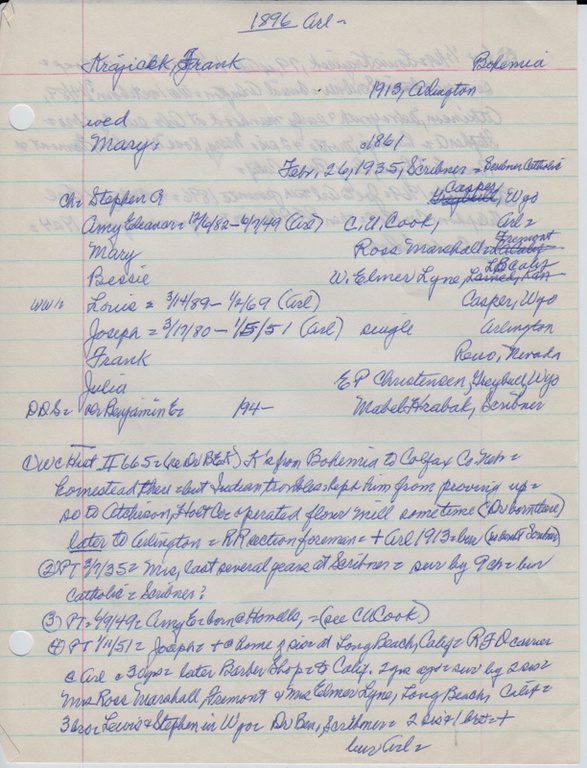 1896 Arl -
Krajicek, Frank Bohemia
1913, Arlington
wed
Mary = 1861
Febr, 26, 1935, Scribner = Scribner Catholic
Ch = Stephen A Casper, Wyo
Amy Eleanor = 12/6/82 - 6/7/49 (Arl) C. U. Cook, Arl =
Mary Ross Marshall = Fremont
Bessie W. Elmer Lyne, L B Calif
WW1 = Louis = 3/14/89 - 1/2/69 (Arl) Casper, Wyo
Joseph = 3/17/80 - 1/5/51 (Arl) single Arlington
Frank Reno, Nevada
Julia E P Christensen, Greybull, Wyo
DDS = Dr Benjamin E = 194- Mabel Hrabak, Scribner
① W C Hist II 665 = (re Dr B E K) K's from Bohemia to Colfax Co Neb =
homestead there = but Indian troubles kept him from proving up =
so to Atchison, Holt Co = operated flour mill sometime (Dr born there)
later to Arlington = RR section foreman = + Arl 1913 = bur
② PT 3/7/35 = Mrs, last several years at Scribner = sur by 9 ch = bur
Catholic = Scribner?
③ PT = 6/9/49 = Amy E = born @ Howells, = (see C U Cook)
④ PT 1/11/51 = Joseph = + @ home of sister at Long Beach, Calif = R F D carrier
@ Arl = 30 yrs = later Barber Shop = to Calif. 2 yrs ago = sur by 2 sis =
Mrs Ross Marshall, Fremont & Mrs Elmer Lyne, Long Beach, Calif =
3 bro = Lewis & Stephen in Wyo = Dr Ben, Scribner = 2 sis & 1 bro = +
bur Arl =